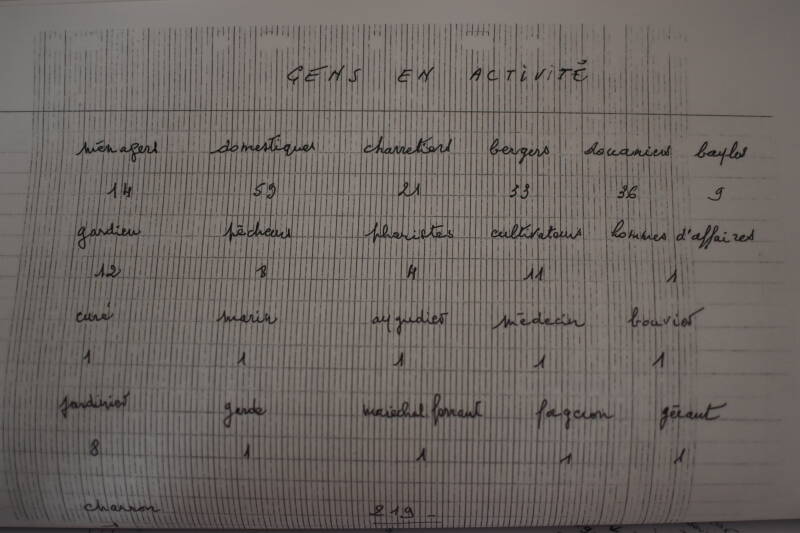 GENS EN ACTIVITÉ
ménagers domestiques charretiers bergers douaniers bayles
14 59 21 33 36 9
gardien pêcheurs pharistes cultivateurs hommes d'affaires
12 8 4 11 1
curé marin aygadier médecin bouvier
1 1 1 1 1
jardinier garde maréchal ferrant gérant
8 1 1 1 1
charron 219